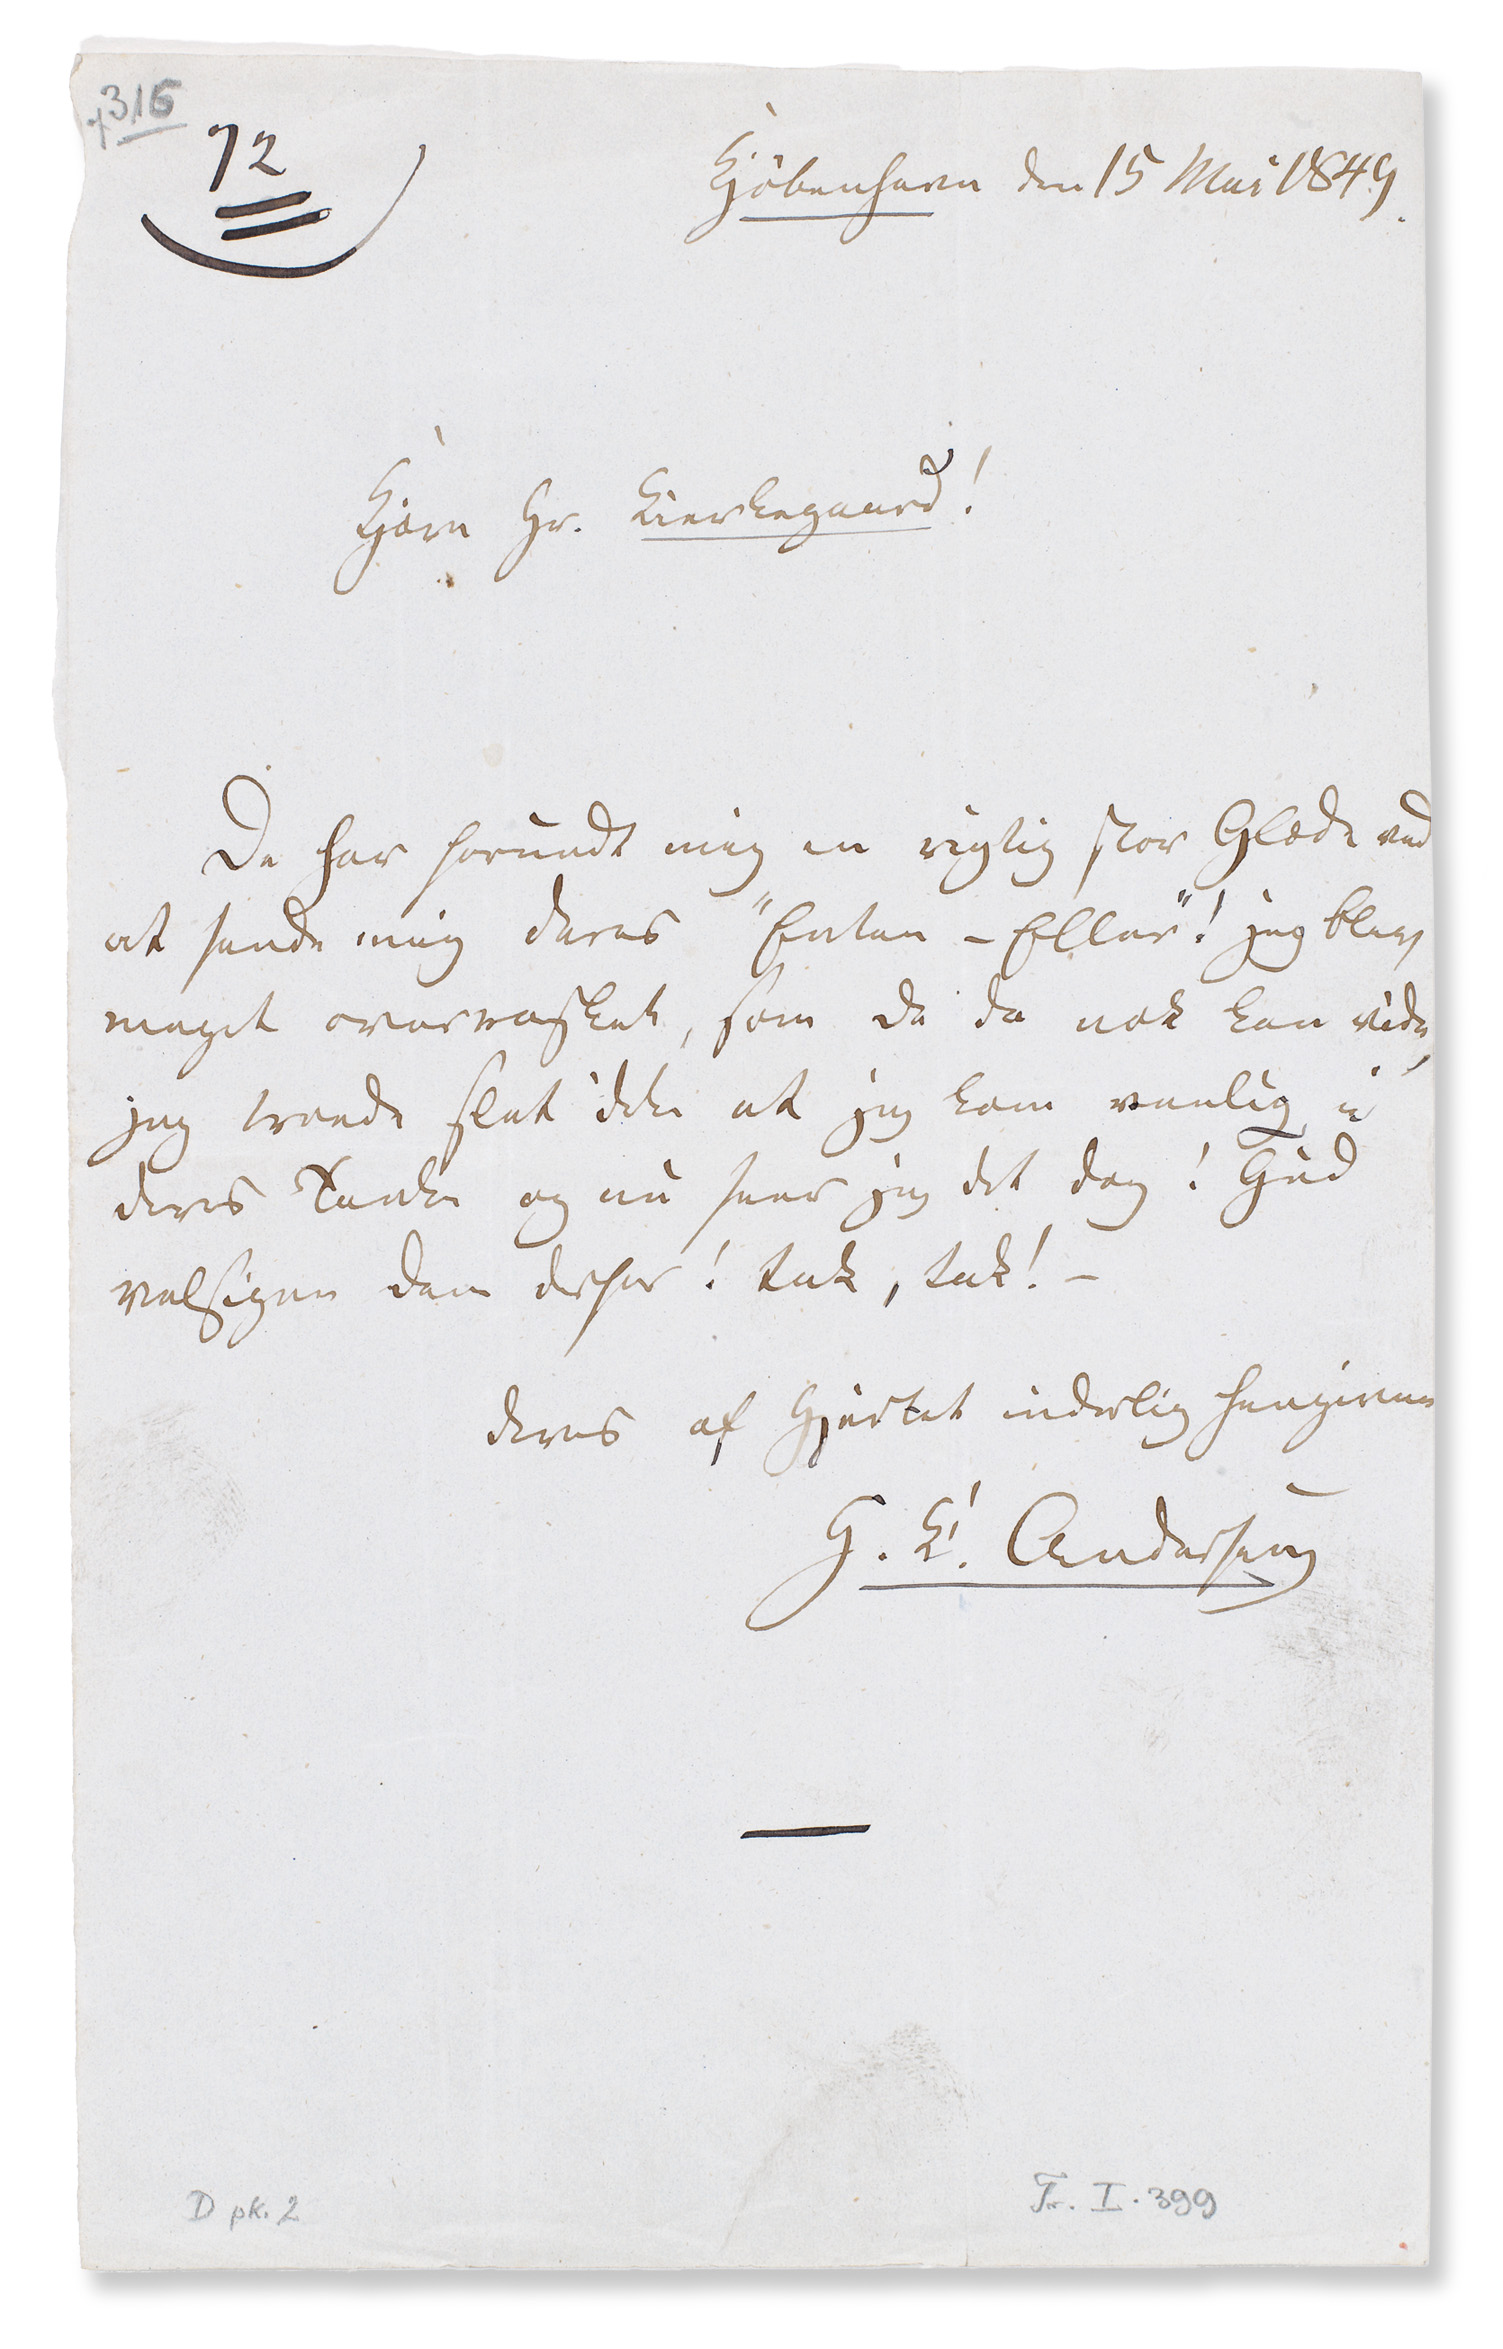 316
72
Kjöbenhavn den 15 Mai 1849.
Kjære Hr. Kierkegaard!
De har forundt mig en rigtig stor Glæde ved
at sende mig deres "Enten - Eller"! jeg blev
meget overrasket, som De da nok kan vide,
jeg troede slet ikke at jeg kom venlig i
deres Tanke og nu seer jeg det dog! Gud
velsigne dem derfor! tak, tak! -
deres af Hjertet inderlig hengivne
H. C. Andersen
D pk. 2
Tr. I. 399